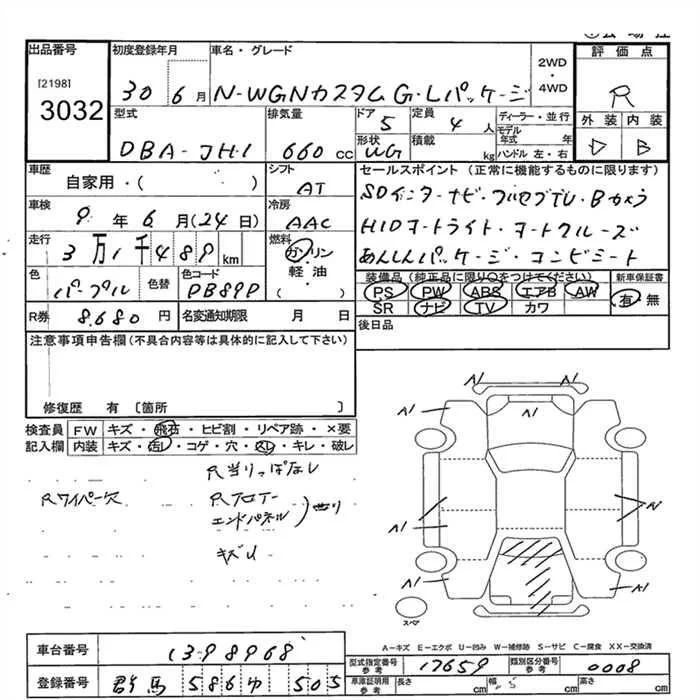 出品番号 初度登録年月 車名・グレード 評価点
[2198]
3032
30 6月 N-WGNカスタム G・Lパッケージ 2WD・4WD R
型式 排気量 ドア 定員 ディーラー・並行 外装 内装
DBA-JH1 660cc 5 4人 モデル年式 年 D B
形状 積載 ハンドル 左・右
WG kg
車歴 シフト セールスポイント (正常に機能するものに限ります)
自家用・( ) AT
SDインターナビ・フルセグTV・Bカメラ
車検 冷房
9年6月(24日) AAC
HIDオートライト・オートクルーズ
走行 燃料
3万1千489km ガソリン
あんしんパッケージ・コンビシート
軽油
( )
色 色替 色コード
パープル PB89P
装備品(純正品に限り○をつけてください) 新車保証書
PS PW ABS エアB AW 有 無
SR ナビ TV カワ
R券 8,680円 名変通知期限 月 日
後日品
注意事項申告欄(不具合内容等は具体的に記入して下さい)
修復歴 有 〔箇所 〕
検査員 FW キズ・飛石・ヒビ割・リペア跡・×要
記入欄 内装 キズ・汚レ・コゲ・穴・スレ・キレ・破レ
R当りっぱなし
Rワイパー欠
Rフロアー
エンドパネル 曲り
キズU
A1 A1
A1 A1
A1
A1 A1
スペア
A-キズ E-エクボ U-凹み W-補修跡 S-サビ C-腐食 XX-交換済
車台番号 1398968
型式指定番号 参考 17659 類別区分番号 参考 0008
登録番号 群馬 586ゆ 505
車庫証明用 参考 長さ cm 幅 cm 高さ cm